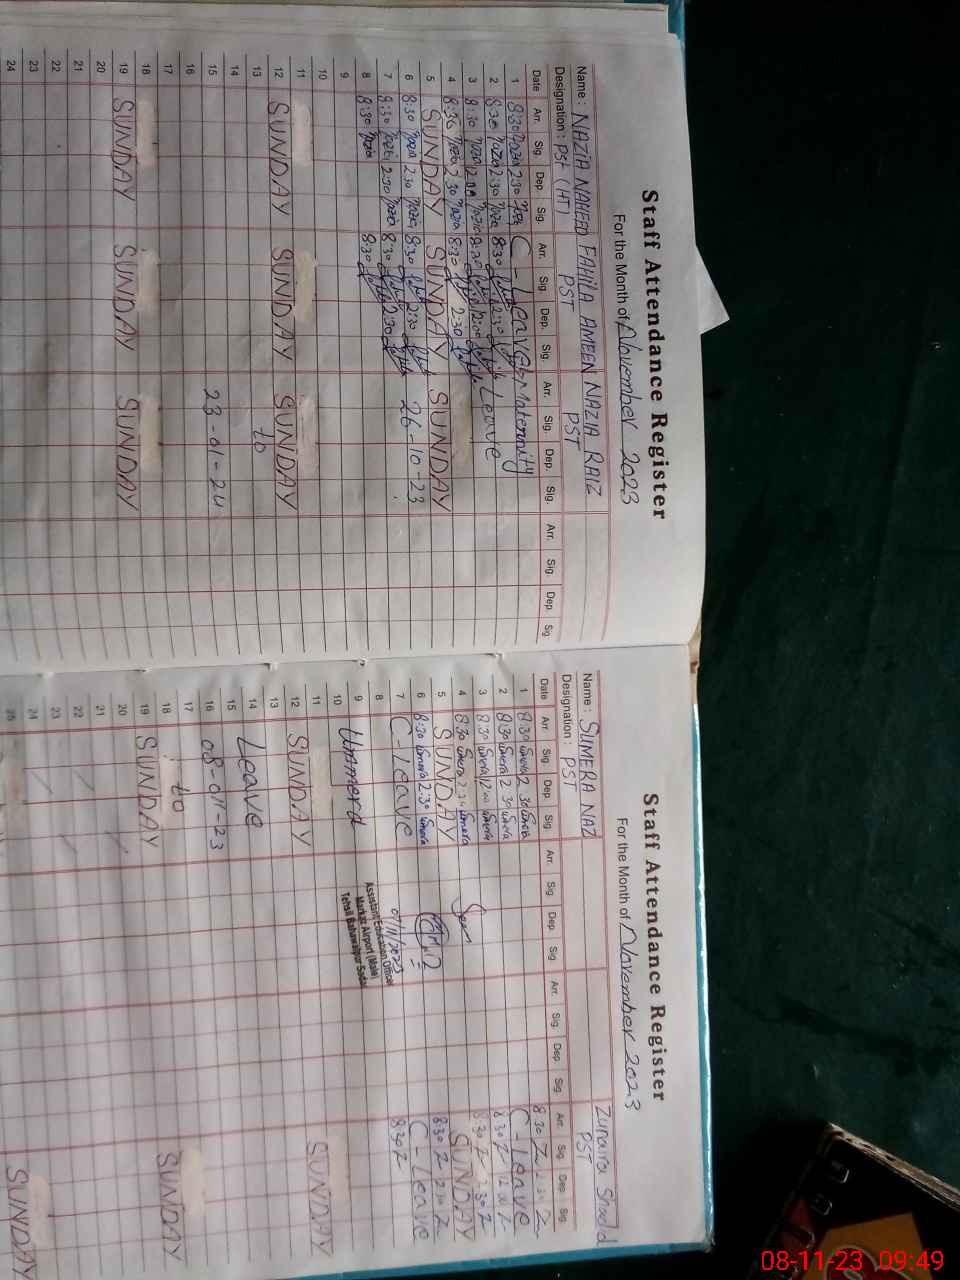 Staff Attendance Register
For the Month of November 2023
Name : NAZIA NAHEED FAHILA AMEEN NAZIA RAIZ
Designation : PSt (HT) PST PST
Date Arr. Sig. Dep. Sig. Arr. Sig. Dep. Sig. Arr. Sig. Dep. Sig. Arr. Sig. Dep. Sig
1 8:30 Nazia 2:30 C - Leave Maternity
2 8:30 Nazia 2:30 8:30 2:30 Leave
3 8:30 Nazia 12:00 Nazia 8:30 12:00
4 8:30 Nazia 2:30 Nazia 8:30 2:30
5 SUNDAY SUNDAY SUNDAY
6 8:30 Nazia 2:30 Nazia 8:30 2:30 26-10-23
7 8:30 Nazia 2:30 Nazia 8:30 2:30
8 8:30 Nazia 8:30
9
10
11
12 SUNDAY SUNDAY SUNDAY
13 to
14
15 23-01-24
16
17
18
19 SUNDAY SUNDAY SUNDAY
20
21
22
23
24
Staff Attendance Register
For the Month of November 2023
Name : SUMERA NAZ Zunaira Shad
Designation : PST PST
Date Arr. Sig Dep Sig. Arr. Sig. Dep. Sig. Arr. Sig. Dep Sig Arr. Sig. Dep. Sig.
1 8:30 Sumera 2:30 Sumera 8:30 Z 2:30 Z
2 8:30 Sumera 2:30 Sumera C - Leave
3 8:30 Sumera 12:00 Sumera 8:30 Z 12:00 Z
4 8:30 Sumera 2:30 Sumera Seen 8:30 Z 2:30 Z
5 SUNDAY SUNDAY
6 8:30 Sumera 2:30 Sumera 8:30 Z 2:30 Z
7 C - Leave 07/11/2023 C - Leave
8 8:30 Z
Assistant Education Officer
Markaz Airport (Male)
Tehsil Bahawalpur Sadar
9 Ummera
10
11
12 SUNDAY SUNDAY
13
14 Leave
15
16 08-011-23
17 to
18
19 SUNDAY SUNDAY
20
21
22
23
24
25
SUNDAY
08-11-23 09:49